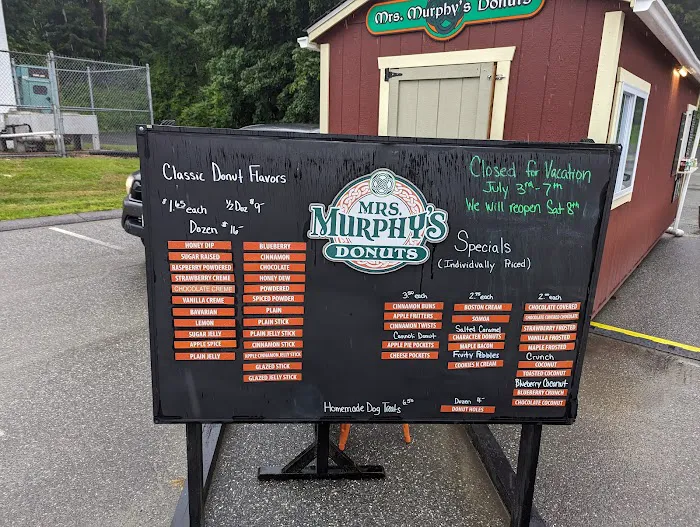 Mrs. Murphy's Donuts
Classic Donut Flavors
$1.65 each ½ Doz $9-
Dozen $16-
HONEY DIP
SUGAR RAISED
RASPBERRY POWDERED
STRAWBERRY CREME
CHOCOLATE CREME
VANILLA CREME
BAVARIAN
LEMON
SUGAR JELLY
APPLE SPICE
PLAIN JELLY
BLUEBERRY
CINNAMON
CHOCOLATE
HONEY DEW
POWDERED
SPICED POWDER
PLAIN
PLAIN STICK
PLAIN JELLY STICK
CINNAMON STICK
APPLE CINNAMON JELLY STICK
GLAZED STICK
GLAZED JELLY STICK
MRS.
MURPHY'S
DONUTS
Closed for Vacation
July 3rd - 7th
We will reopen Sat 8th
Specials
(Individually Priced)
each
CINNAMON BUNS
APPLE FRITTERS
CINNAMON TWISTS
Donut
APPLE PIE POCKETS
CHEESE POCKETS
each
BOSTON CREAM
SAMOA
Salted Caramel
CHARACTER DONUTS
MAPLE BACON
Fruity Pebbles
COOKIES N CREAM
each
CHOCOLATE COVERED
CHOCOLATE COVERED CHOCOLATE
STRAWBERRY FROSTED
VANILLA FROSTED
MAPLE FROSTED
Crunch
COCONUT
TOASTED COCONUT
Blueberry Coconut
BLUEBERRY CRUNCH
CHOCOLATE COCONUT
Homemade Dog Treats 6.50
Dozen 4-
DONUT HOLES